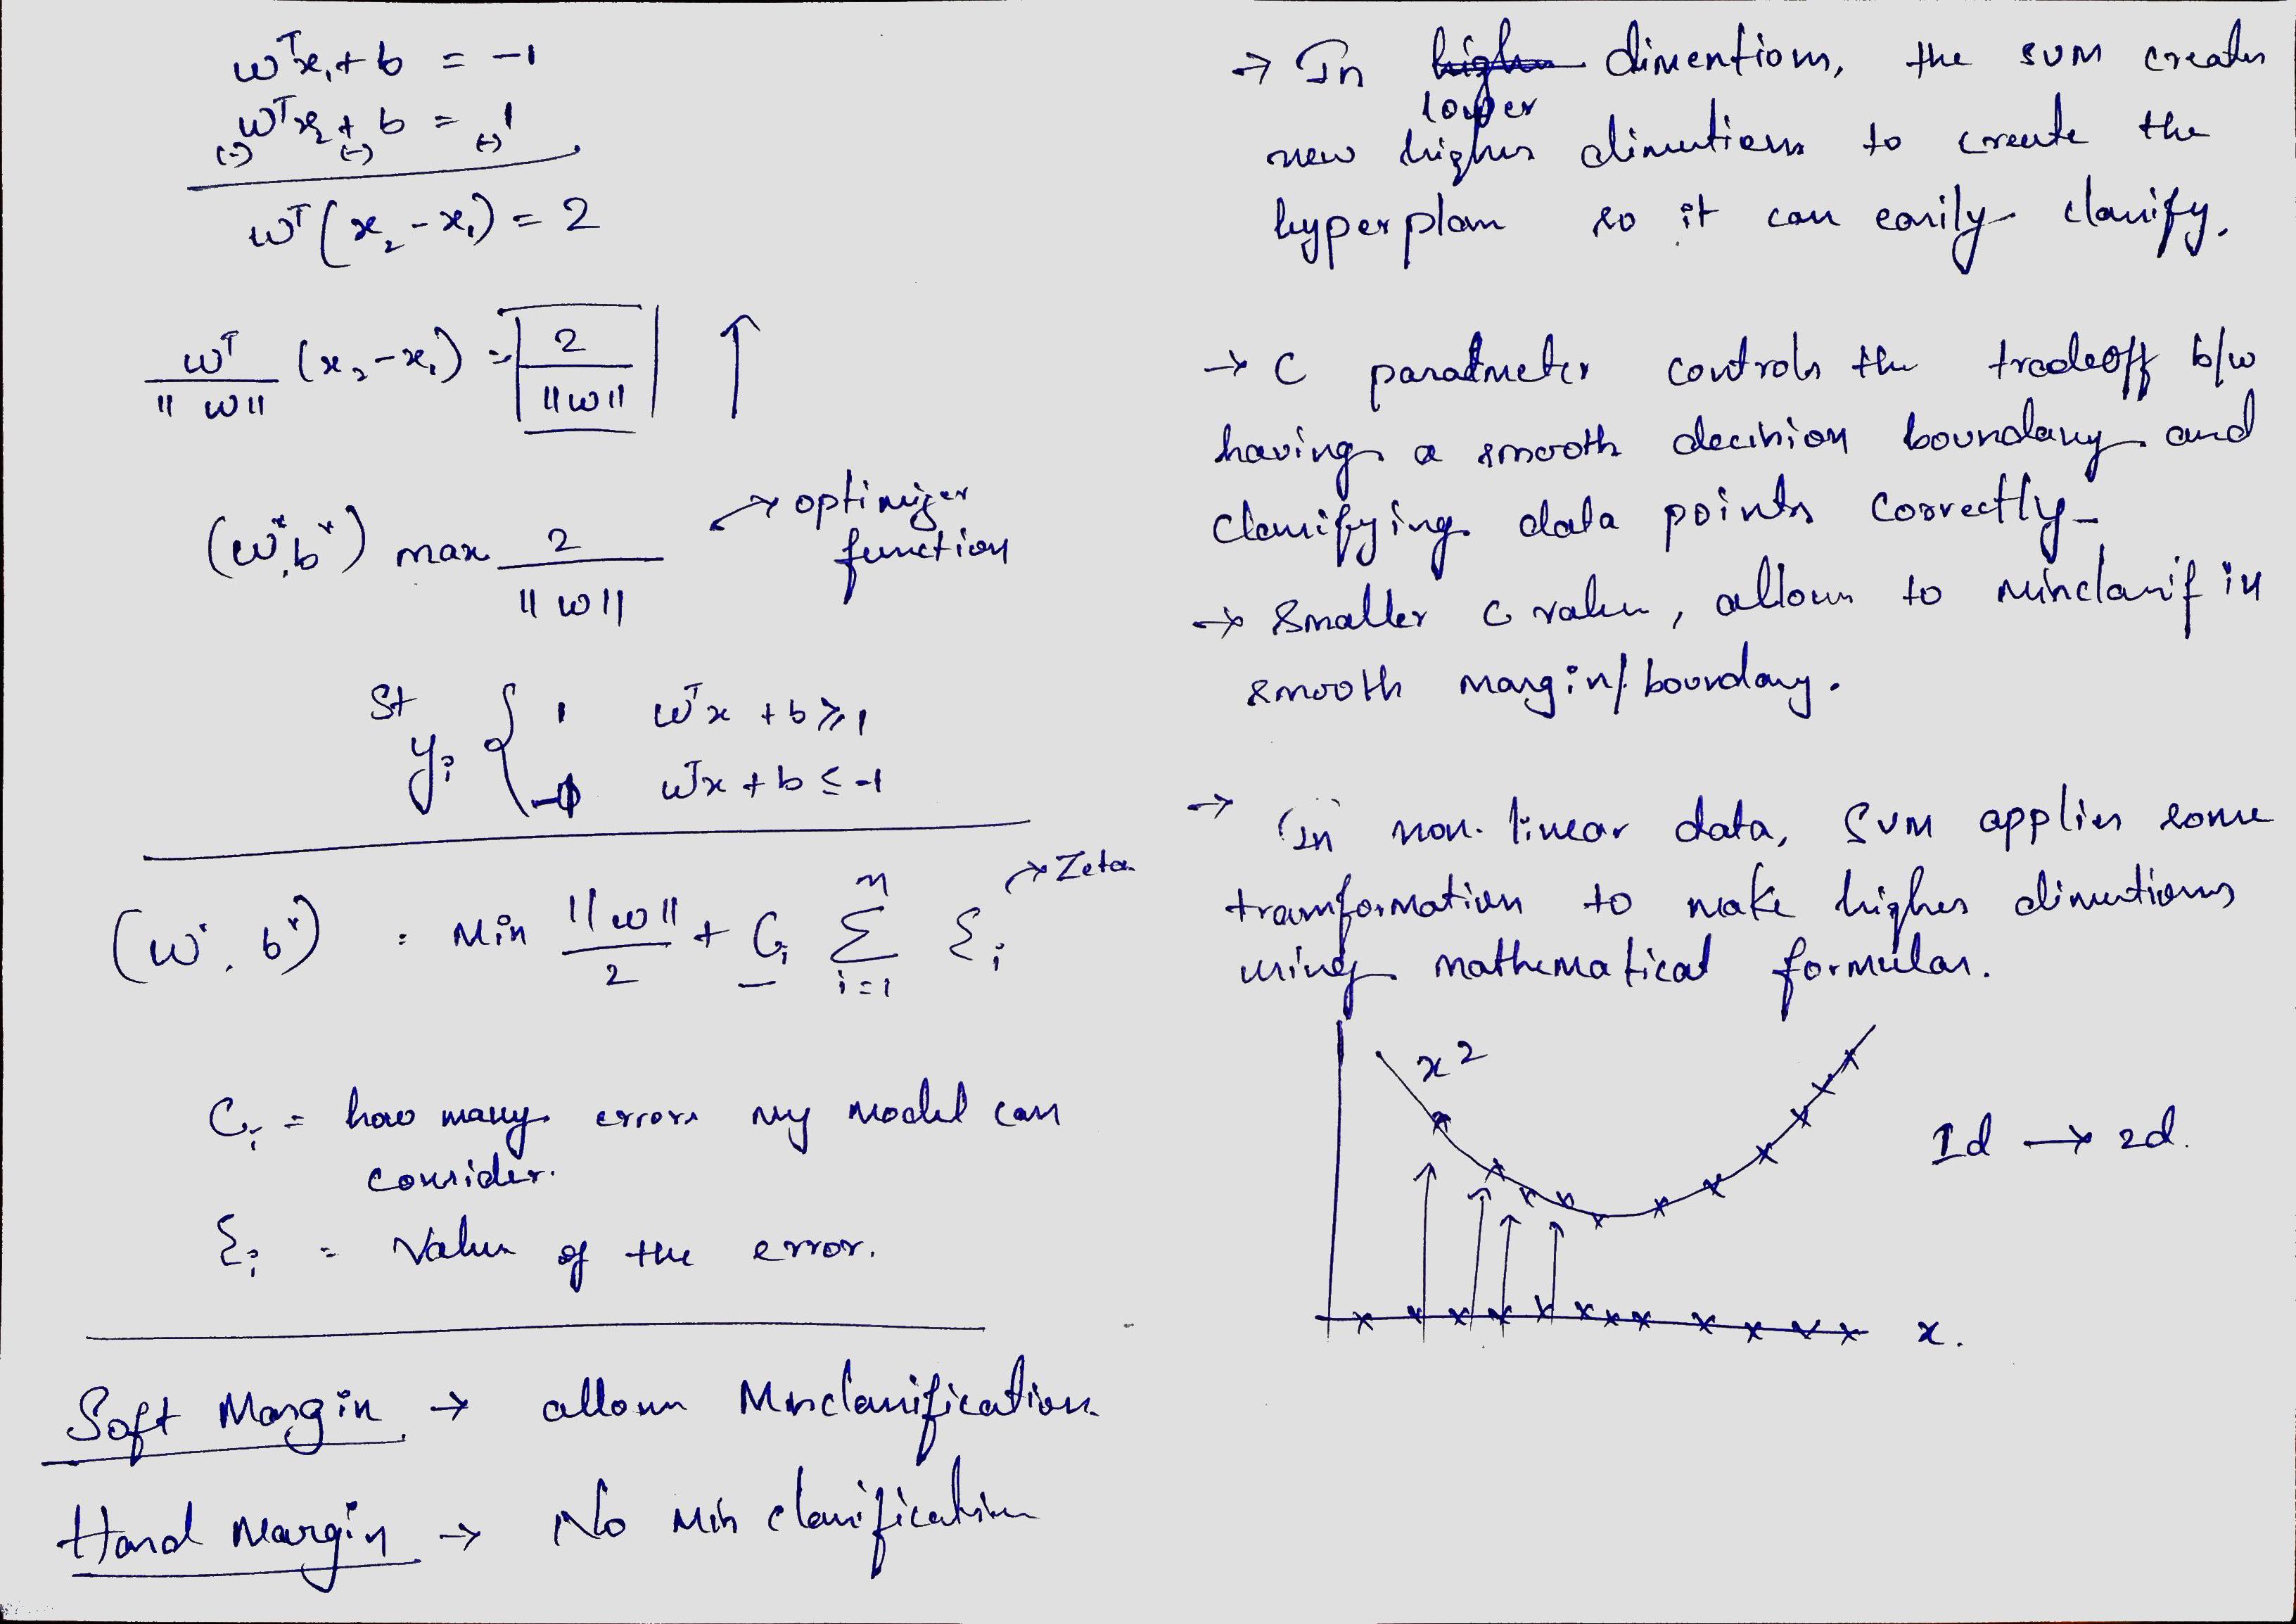 wᵀx₁ + b = -1
wᵀx₂ + b = 1
(-) (-) (-)
wᵀ(x₂ - x₁) = 2
wᵀ/||w|| (x₂ - x₁) = 2/||w|| ↑
(w*, b*) max 2/||w|| → optimizer
function
St
yᵢ { 1 wᵀx + b ≥ 1
-1 wᵀx + b ≤ -1
(w*, b*) : Min ||w||/2 + Cᵢ Σ ξᵢ → Zeta
n
i=1
Cᵢ = how many errors my model can
consider.
ξᵢ = Value of the error.
Soft Margin → allows Misclassification
Hard Margin → No Mis classification
→ In high dimentions, the SVM creates
lower
new higher dimentions to create the
hyperplan so it can easily classify.
→ C parameter controls the tradeoff b/w
having a smooth decision boundary and
classifying data points correctly-
→ Smaller C value, allows to misclassif in
smooth margin/boundary.
→ In non-linear data, SVM applies some
transformation to make higher dimentions
using mathematical formulas.
x²
1d → 2d.
x.